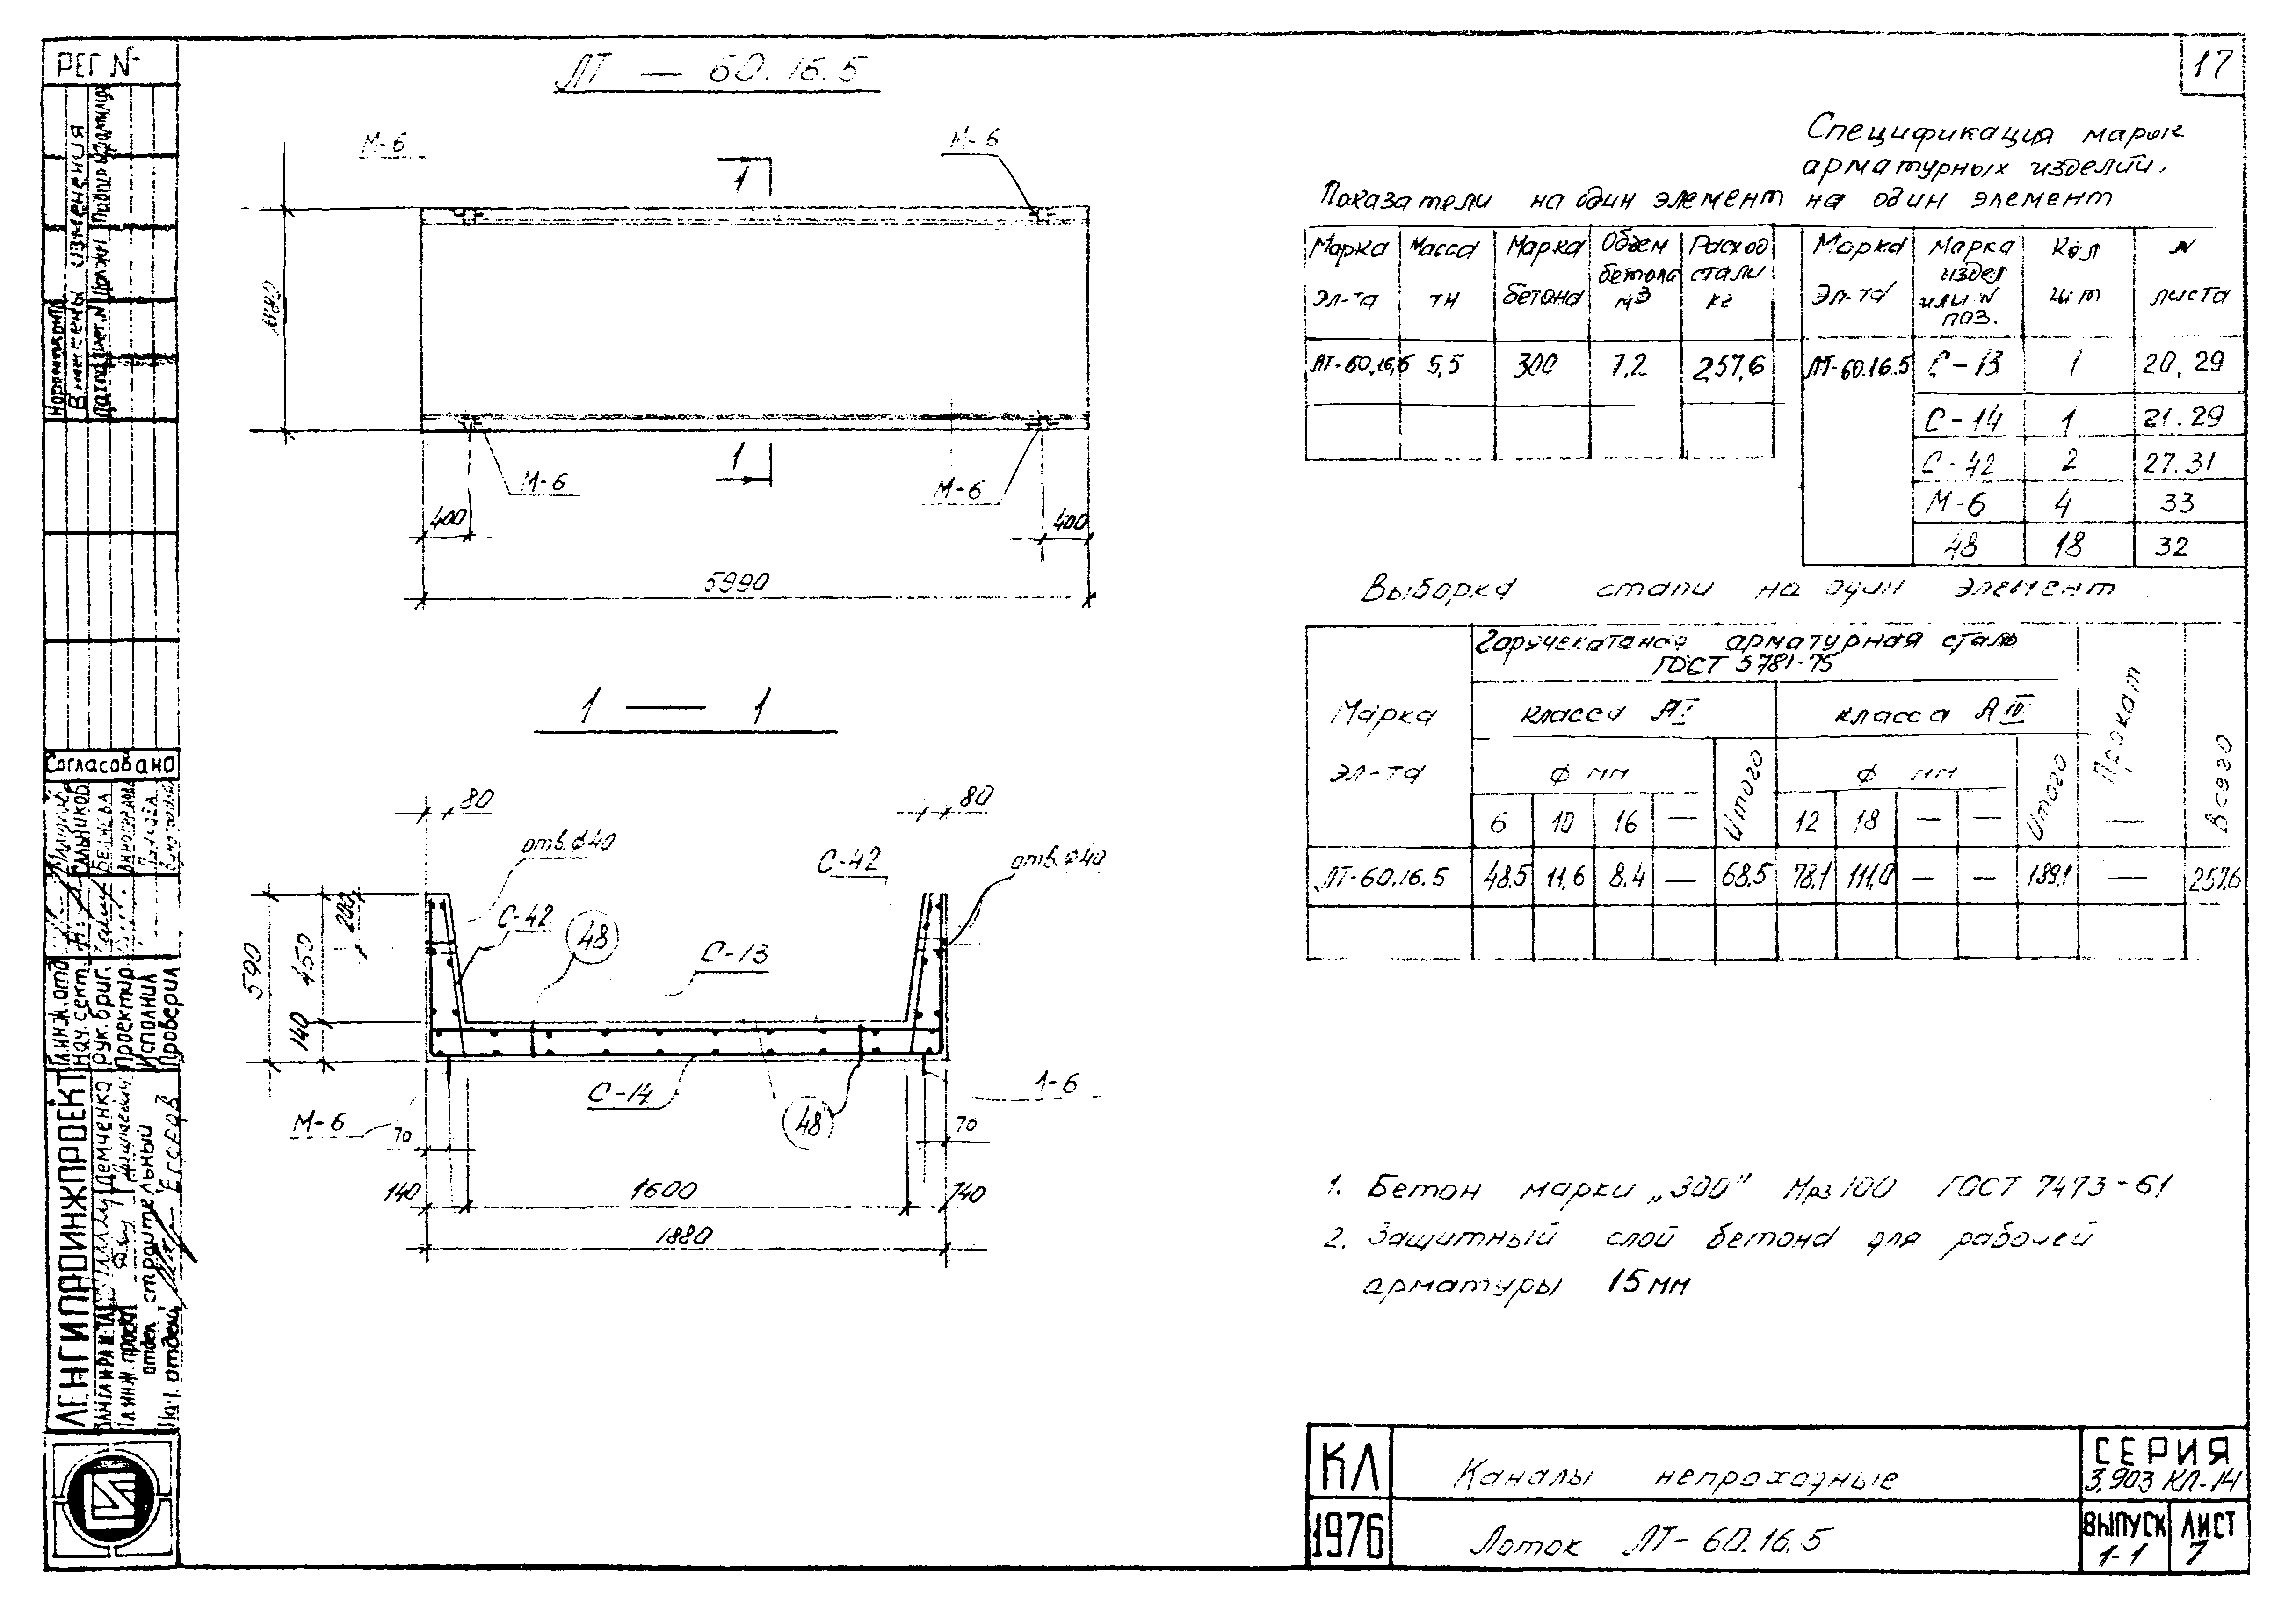 РЕГ №
17
ЛТ — 60.16.5
М-6
М-6
1
1880
М-6
М-6
1
400
400
5990
1 — 1
80
80
отв.ф40
С-42
отв.ф40
С-42
48
С-13
200
590
450
140
С-14
48
М-6
70
70
140
1600
140
1880
Показатели на один элемент
Марка Эл-та
Масса тн
Марка бетона
Объем бетона м3
Расход стали кг
5,5
300
257,6
Спецификация марок
арматурных изделий,
на один элемент
Марка Эл-та
Марка издел или N поз.
Кол шт
N листа
ЛТ-60.16.5 С-13 1 20, 29
С-14 1 21.29
С-42 2 27.31
М-6 4 33
48 18 32
Выборка стали на один элемент
Марка эл-та
Горячекатаная арматурная сталь
ГОСТ 5781-75
класса АI
класса АIII
Прокат
Всего
ф мм
Итого
ф мм
Итого
6 10 16 — 12 18 — — —
ЛТ-60.16.5 48.5 11,6 8.4 — 68,5 78,1 111,0 — — 189,1 — 257.6
1. Бетон марки „300" Мрз 100 ГОСТ 7473-61
2. Защитный слой бетона для рабочей
арматуры 15мм
КЛ
Каналы непроходные
СЕРИЯ
3.903 КЛ-14
1976
Лоток ЛТ-60.16.5
ВЫПУСК
1-1
ЛИСТ
7
Внесены изменения
Согласовано
Сальников
Беляева
Нач. сект.
Рук. бриг.
Проектир.
Исполнил
Проверил
ЛЕНГИПРОИНЖПРОЕКТ
Демченко
отдел строительный